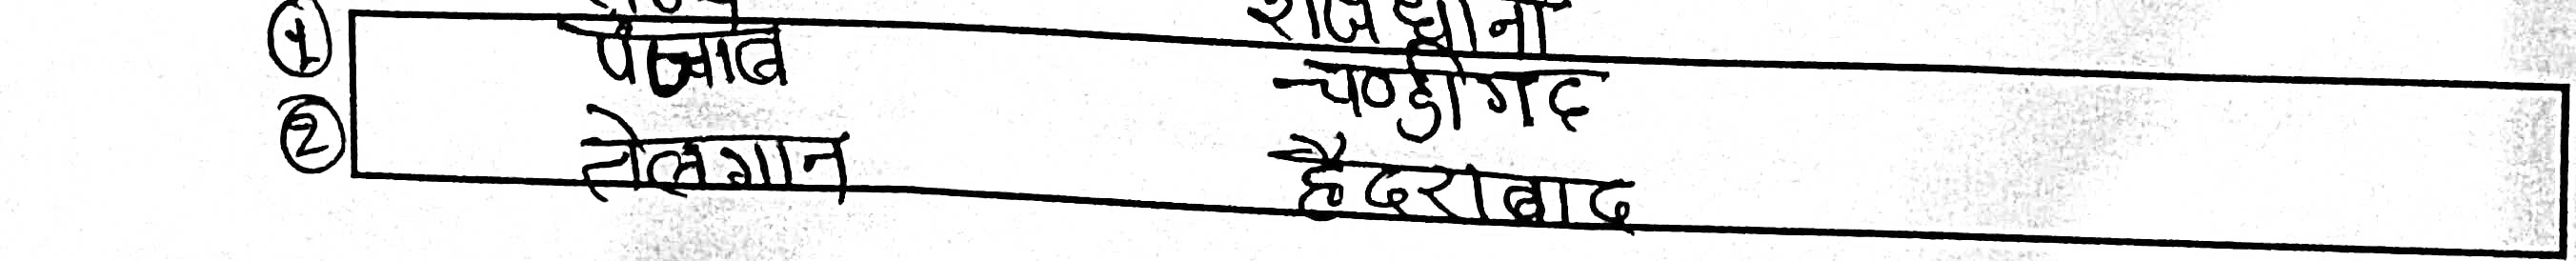 राजधानी
① पंजाब चण्डीगढ
② तेलगान हैदराबाद